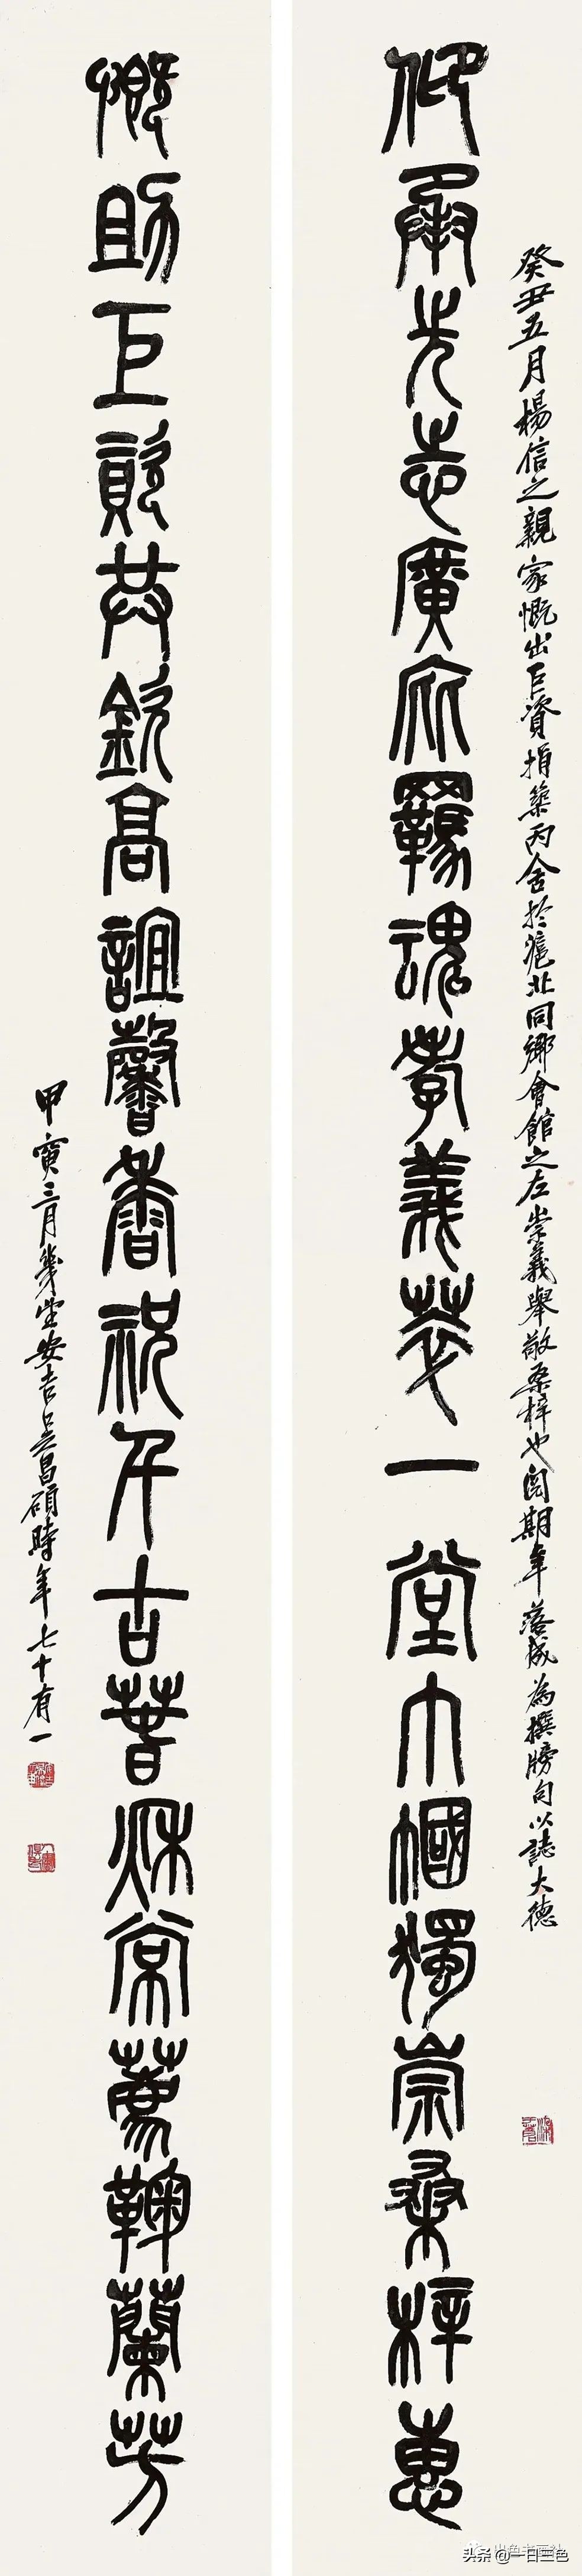 癸丑五月楊信之親家慨出巨資捐築丙舍於滬北同鄉會館之左崇義舉敬桑梓也閱期年落成為撰牓句以誌大德
仰承先志廣庇羈魂孝義萃一堂巾幗獨崇桑梓惠
慨助巨資共欽高誼馨香祝千古春秋常薦鞠蘭芳
甲寅三月幾望安吉吳昌碩時年七十有一
头条 @一日三色